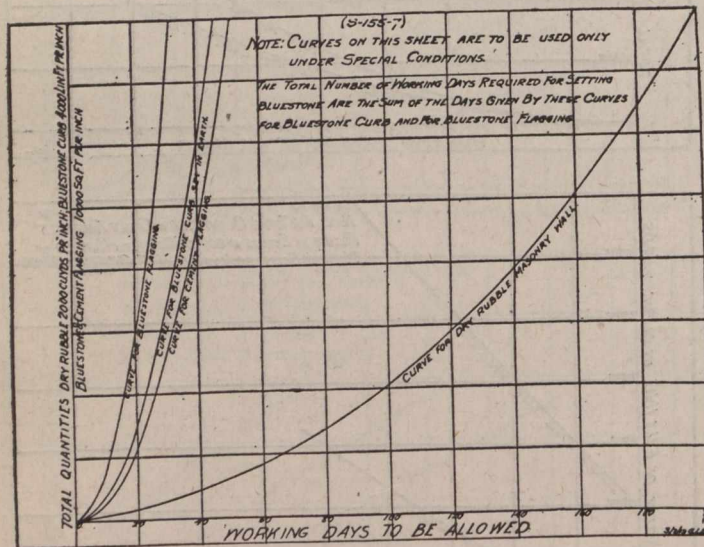 (S-155-7)
NOTE: CURVES ON THIS SHEET ARE TO BE USED ONLY
UNDER SPECIAL CONDITIONS.
THE TOTAL NUMBER OF WORKING DAYS REQUIRED FOR SETTING
BLUESTONE ARE THE SUM OF THE DAYS GIVEN BY THESE CURVES
FOR BLUESTONE CURB AND FOR BLUESTONE FLAGGING
TOTAL QUANTITIES DRY RUBBLE 2000 CU.YDS PR INCH, BLUESTONE CURB 4000 LIN FT PR INCH
BLUESTONE & CEMENT FLAGGING 10000 SQ.FT PER INCH
CURVE FOR BLUESTONE FLAGGING
CURVE FOR BLUESTONE CURB SET IN EARTH
CURVE FOR CEMENT FLAGGING
CURVE FOR DRY RUBBLE MASONRY WALL
20 40 60 80 100 120 140 160
WORKING DAYS TO BE ALLOWED